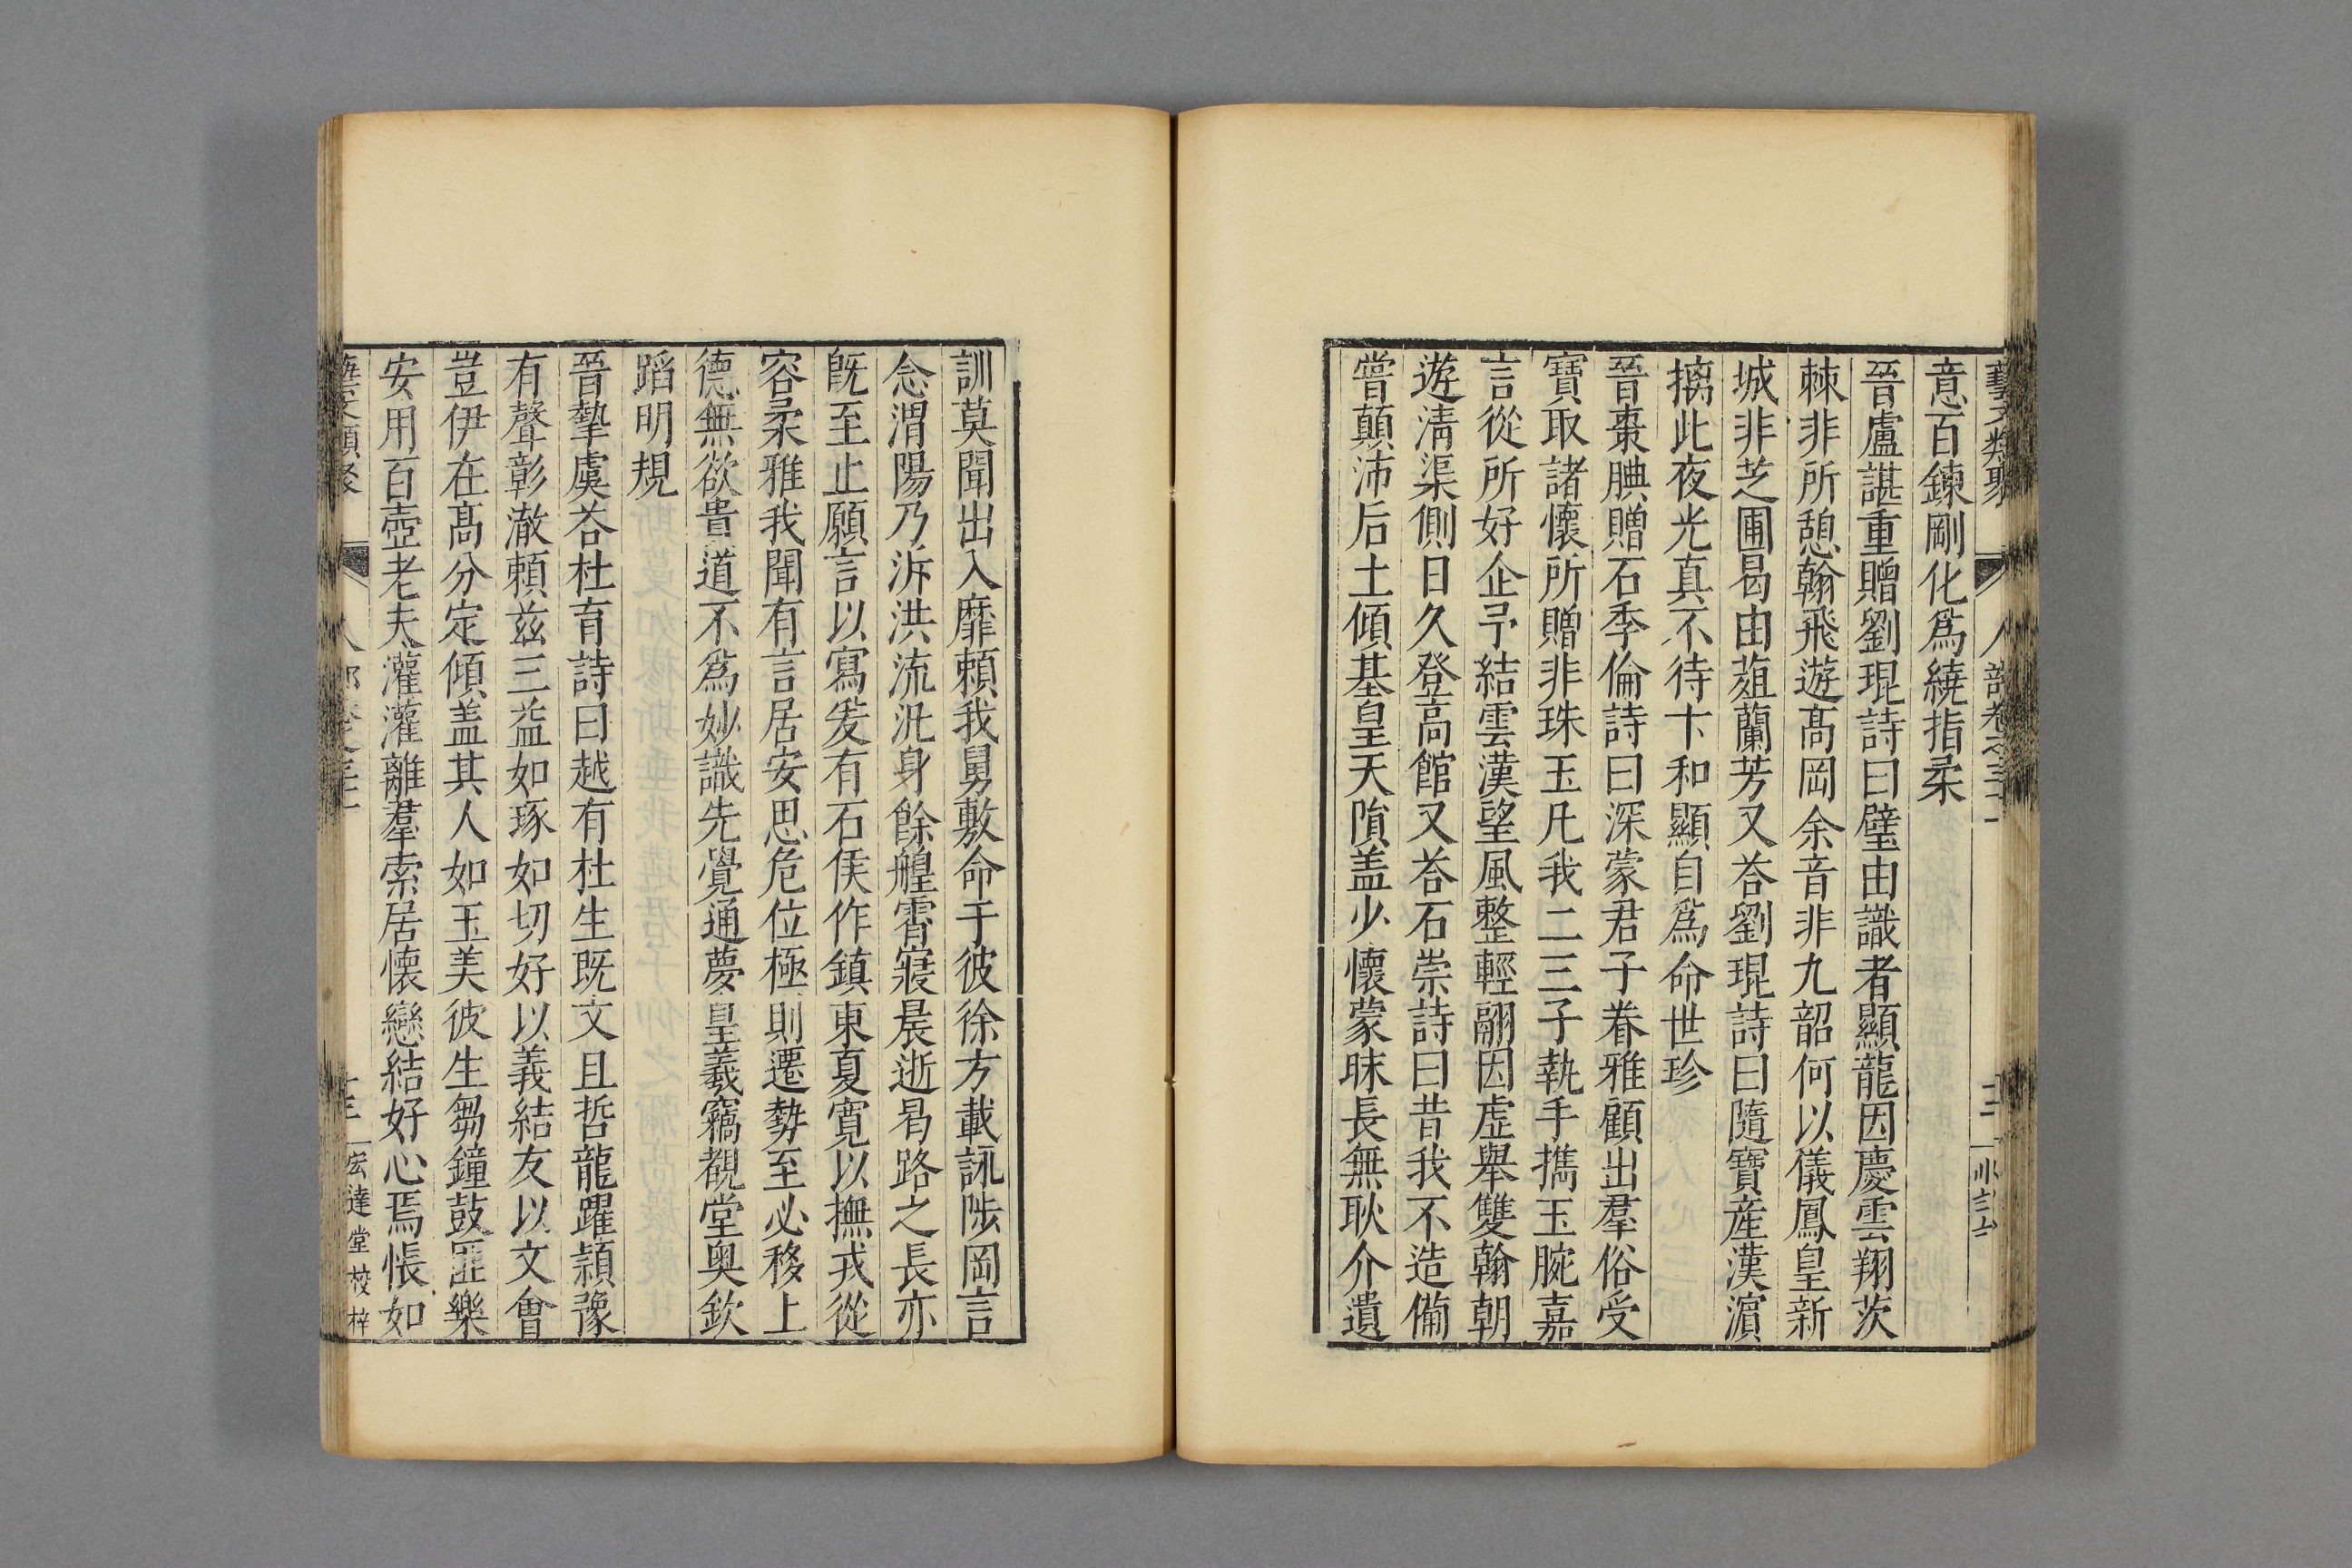 藝文類聚 人部卷之三十一
意百鍊剛化爲繞指柔
晉盧諶重贈劉琨詩曰璧由識者顯龍因慶雲翔茨
棘非所憩翰飛遊髙岡余音非九韶何以儀鳳皇新
城非芝圃曷由蒩蘭芳又荅劉琨詩曰隨寶産漢濵
摛此夜光真不待卞和顯自爲命世珍
晉棗腆贈石季倫詩曰深蒙君子眷雅顧出羣俗受
寶取諸懷所贈非珠玉凡我二三子執手攜玉腕嘉
言從所好企予結雲漢望風整輕翮因虛舉雙翰朝
遊淸渠側日夕登高館又荅石崇詩曰昔我不造備
嘗顛沛后土傾基皇天隕盖少懷蒙昧長無耿介遺
訓莫聞出入靡頼我舅敷命于彼徐方載詠陟岡言
念渭陽乃泝洪流汎身餘艎霄寢晨逝曷路之長亦
旣至止願言以寫爰有石侯作鎮東夏寛以撫戎從
容柔雅我聞有言居安思危位極則遷勢至必移上
德無欲貴道不爲妙識先覺通夢皇羲竊覩堂奥欽
蹈明規
晉摯虞荅杜育詩曰越有杜生既文且哲龍躍潁豫
有聲彰澈頼兹三益如琢如切好以義結友以文會
豈伊在髙分定傾盖其人如玉美彼生芻鐘鼓匪樂
安用百壺老夫灌灌離羣索居懷戀結好心焉悵如
宏達堂校梓